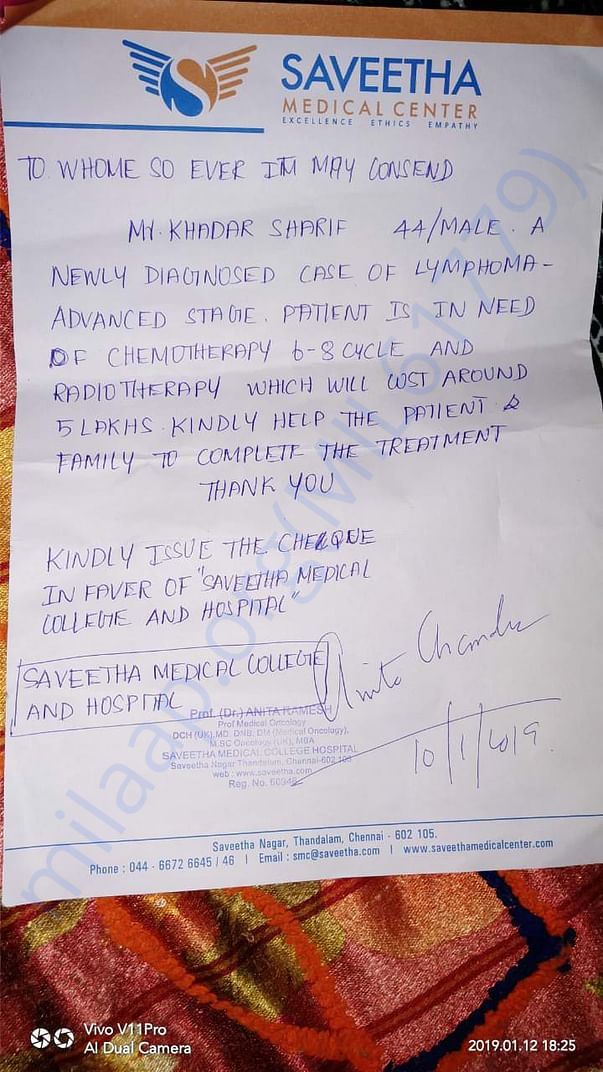 SAVEETHA
MEDICAL CENTER
EXCELLENCE ETHICS EMPATHY
TO WHOME SO EVER ITM MAY CONSEND
Mr. KHADAR SHARIF 44/MALE. A
NEWLY DIAGNOSED CASE OF LYMPHOMA-
ADVANCED STAGE. PATIENT IS IN NEED
OF CHEMOTHERAPY 6-8 CYCLE AND
RADIOTHERAPY WHICH WILL COST AROUND
5 LAKHS. KINDLY HELP THE PATIENT &
FAMILY TO COMPLETE THE TREATMENT
THANK YOU
KINDLY ISSUE THE CHEQUE
IN FAVER OF "SAVEETHA MEDICAL
COLLEGE AND HOSPITAL"
SAVEETHA MEDICAL COLLEGE
AND HOSPITAL
Prof. (Dr.) ANITA RAMESH
Prof Medical Oncology
DCH (UK), MD, DNB, DM (Medical Oncology),
M.SC Oncology (UK), MBA
SAVEETHA MEDICAL COLLEGE HOSPITAL
Saveetha Nagar Thandalam, Chennai-602 105
web : www.saveetha.com
Reg. No.
10/1/2019.
Saveetha Nagar, Thandalam, Chennai - 602 105.
Phone : 044 - 6672 6645 / 46 | Email : smc@saveetha.com | www.saveethamedicalcenter.com
milaap.org
Vivo V11Pro
AI Dual Camera
2019.01.12 18:25